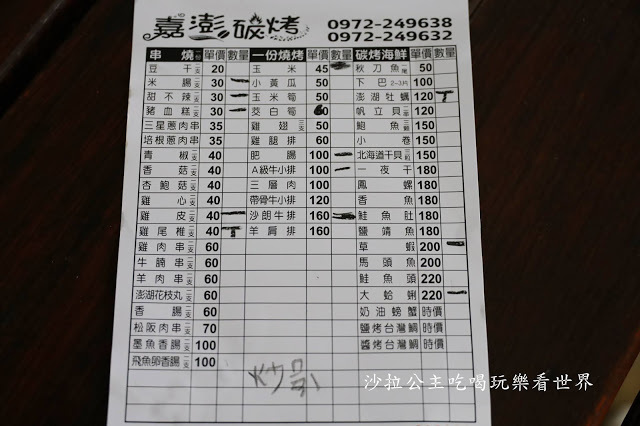 嘉澎碳烤 0972-249638
0972-249632
串燒 單價 數量 一份燒烤 單價 數量 碳烤海鮮 單價 數量
豆干二支 20 玉米 45 秋刀魚 50
米腸 30 一 小黃瓜 50 下巴2-3片 100
甜不辣二支 30 一 玉米筍 50 澎湖牡蠣 120 T
豬血糕二支 30 一 茭白筍 60 帆立貝 120
三星蔥肉串 35 雞翅二支 50 鮑魚 150
培根蔥肉串 35 雞腿排 60 小卷 150
青椒二支 40 肥腸 100 一 北海道干貝 150
香菇二支 40 A級牛小排 100 一 一夜干 180
杏鮑菇二支 40 三層肉 100 鳳螺 180
雞心二支 40 帶骨牛小排 120 香魚 180
雞皮二支 40 一 沙朗牛排 160 鮭魚肚 180
雞尾椎二支 40 T 羊肩排 160 鹽靖魚 180
雞肉串二支 60 草蝦 200 一
牛腩串二支 60 馬頭魚 200
羊肉串二支 60 鮭魚頭 220
澎湖花枝丸二支 60 大蛤蜊 220 一
香腸二支 60 奶油螃蟹 時價
松阪肉串二支 70 鹽烤台灣鯛 時價
墨魚香腸二支 100 醬烤台灣鯛 時價
飛魚卵香腸二支 100
沙拉公主吃喝玩樂看世界